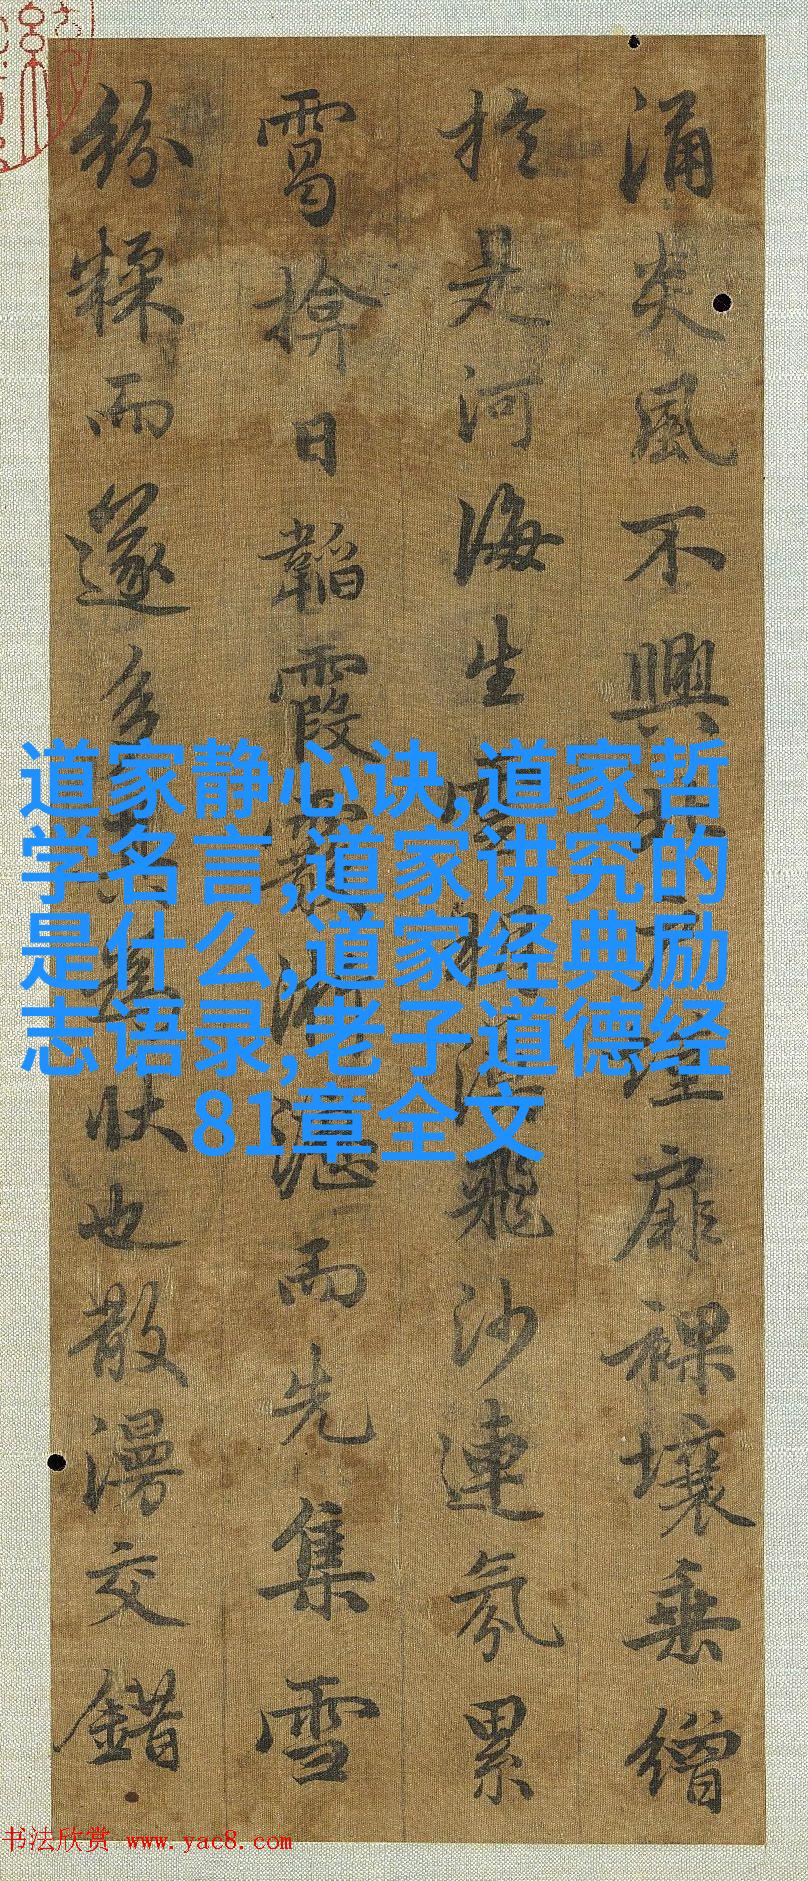 涌炎風不興北户墐扉裸壤垂繒
於是河海生雲朔漠飛沙連氛累
靄揜日韜霞霰淅瀝而先集雪
紛糅而遂多其為狀也散漫交錯
道家静心诀,道家哲
学名言,道家讲究的
是什么,道家经典励
志语录,老子道德经
81章全文
书法欣赏 www.yac8.com